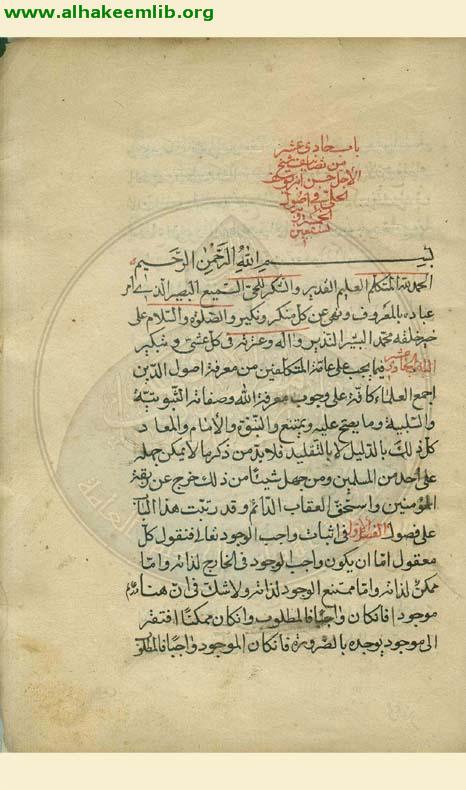 www.alhakeemlib.org
باب حادى عشر
من تصانيف شيخ
الاجل حسن ابن يوسف
الحلى فى اصول
بسم الله الرحمن الرحيم
الحمد لله المتكلم العليم القدير والشكر للحى السميع البصير الذى امر
عباده بالمعروف ونهى عن كل منكر ونكير والصلوة والسلام على
خير خلقه محمد البشير النذير واله وعترته فى كل عشى و بكير
الباب الحادى عشر فيما يجب على عامة المتكلفين من معرفة اصول الدين
اجمع العلماء كافة على وجوب معرفة الله وصفاته الثبوتية
والسلبية وما يصح عليه ويمتنع والنبوة والامامة والمعاد
كل ذلك بالدليل لا بالتقليد فلابد من ذكر ما لا يمكن جهله
على احد من المسلمين ومن جهل شيئا من ذلك خرج عن ربقة
المؤمنين واستحق العقاب الدائم وقد رتبت هذا الباب
على فصول الفصل الاول فى اثبات واجب الوجود تعالى فنقول كل
معقول اما ان يكون واجب الوجود فى الخارج لذاته واما
ممكن لذاته واما ممتنع الوجود لذاته ولا شك فى ان هنا
موجودا فان كان واجبا فالمطلوب وان كان ممكنا افتقر
الى موجود يوجده بالضرورة فان كان الموجود واجبا فالمطلوب